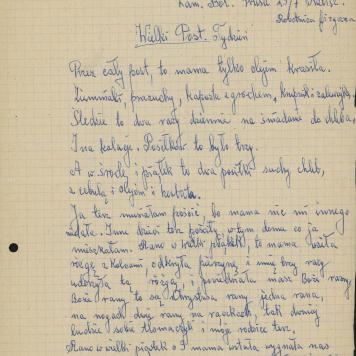 Robotnica fizyczna
Wielki Post. Tydzień
Przez cały post, to mama tylko olejem krasiła.
Ziemniaki, prazuchy, kapusta z grochem,
Śledzie to dwa razy dziennie na śniadanie do chleba,
I na kolację. Posiłków to było trzy.
A w środę i piątek to dwa posiłki suchy chleb,
z cebulą i olejem i herbata.
Ja też musiałam pościć, bo mama nie mi innego
nie dała. Inne dzieci też pościły, w tym domu co ja
mieszkałam. Rano w wielki piątek, to mama wzięła
rózgę z kolcami, odkryła pierzynę, i mnie trzy razy
uderzyła tą rózgą, i powiedziała masz Boże rany
Boże rany to są Chrystusa rany jedna rana,
na nogach dwie rany na rączkach, tak dawniej
ludzie sobie tłomaczyli i moje rodzice też,
Rano w wielki piątek o 5 mama wstała wygnała nas